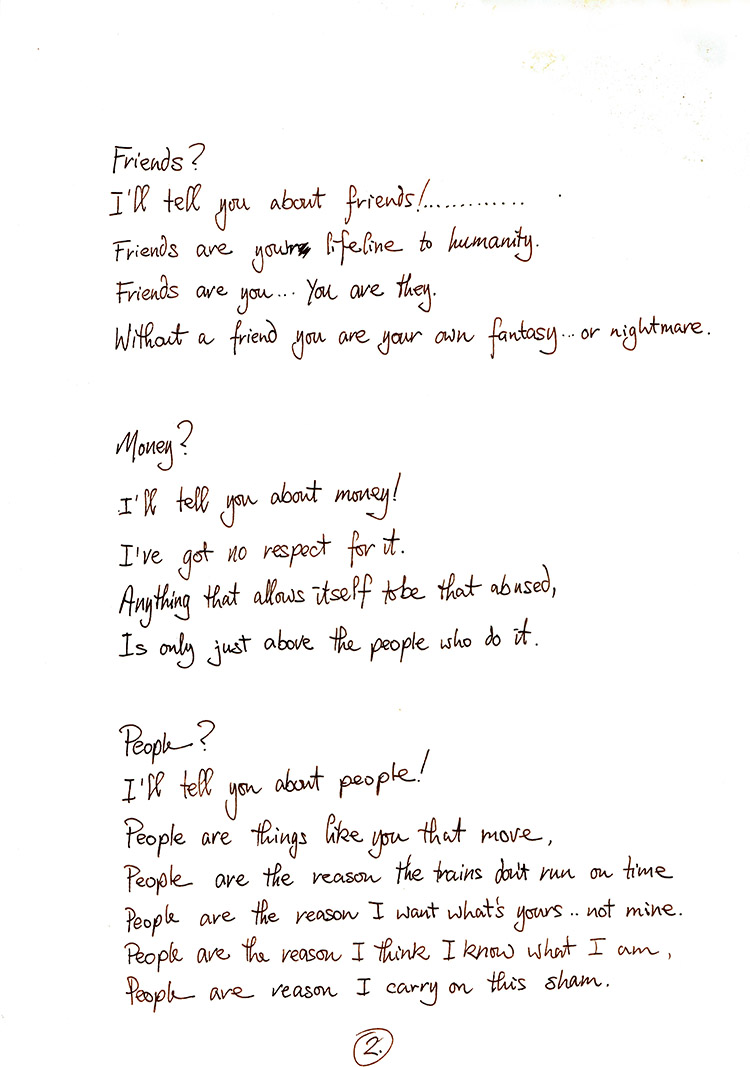 Friends?
I'll tell you about friends!............
Friends are your lifeline to humanity.
Friends are you... You are they.
Without a friend you are your own fantasy... or nightmare.
Money?
I'll tell you about money!
I've got no respect for it.
Anything that allows itself to be that abused,
Is only just above the people who do it.
People?
I'll tell you about people!
People are things like you that move,
People are the reason the trains don't run on time
People are the reason I want what's yours.. not mine.
People are the reason I think I know what I am,
People are reason I carry on this sham.
2.